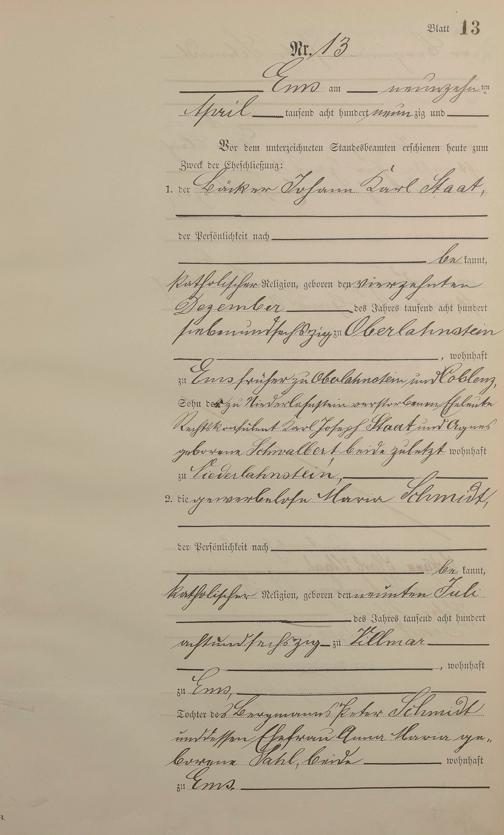 Blatt 13
Nr. 13
Ems am neunzehnten
April tausend acht hundert neunzig und
Vor dem unterzeichneten Standesbeamten erschienen heute zum
Zweck der Eheschließung:
1. der Bäcker Johann Karl Staat,
der Persönlichkeit nach
be kannt,
katholischer Religion, geboren den vierzehnten
Dezember des Jahres tausend acht hundert
siebenundsechszig zu Oberlahnstein
, wohnhaft
zu Ems früher zu Oberlahnstein und Coblenz,
Sohn der zu Niederlahnstein verstorbenen Eheleute
Rechtskonsulent Karl Joseph Staat und Agnes
geborene Schwalbert, beide zuletzt wohnhaft
zu Niederlahnstein,
2. die gewerbelose Maria Schmidt,
der Persönlichkeit nach
be kannt,
katholischer Religion, geboren den neunten Juli
des Jahres tausend acht hundert
achtundsechszig zu Villmar
, wohnhaft
zu Ems,
Tochter des Bergmanns Peter Schmidt
und dessen Ehefrau Anna Maria ge-
borene Fahl, beide wohnhaft
zu Ems.